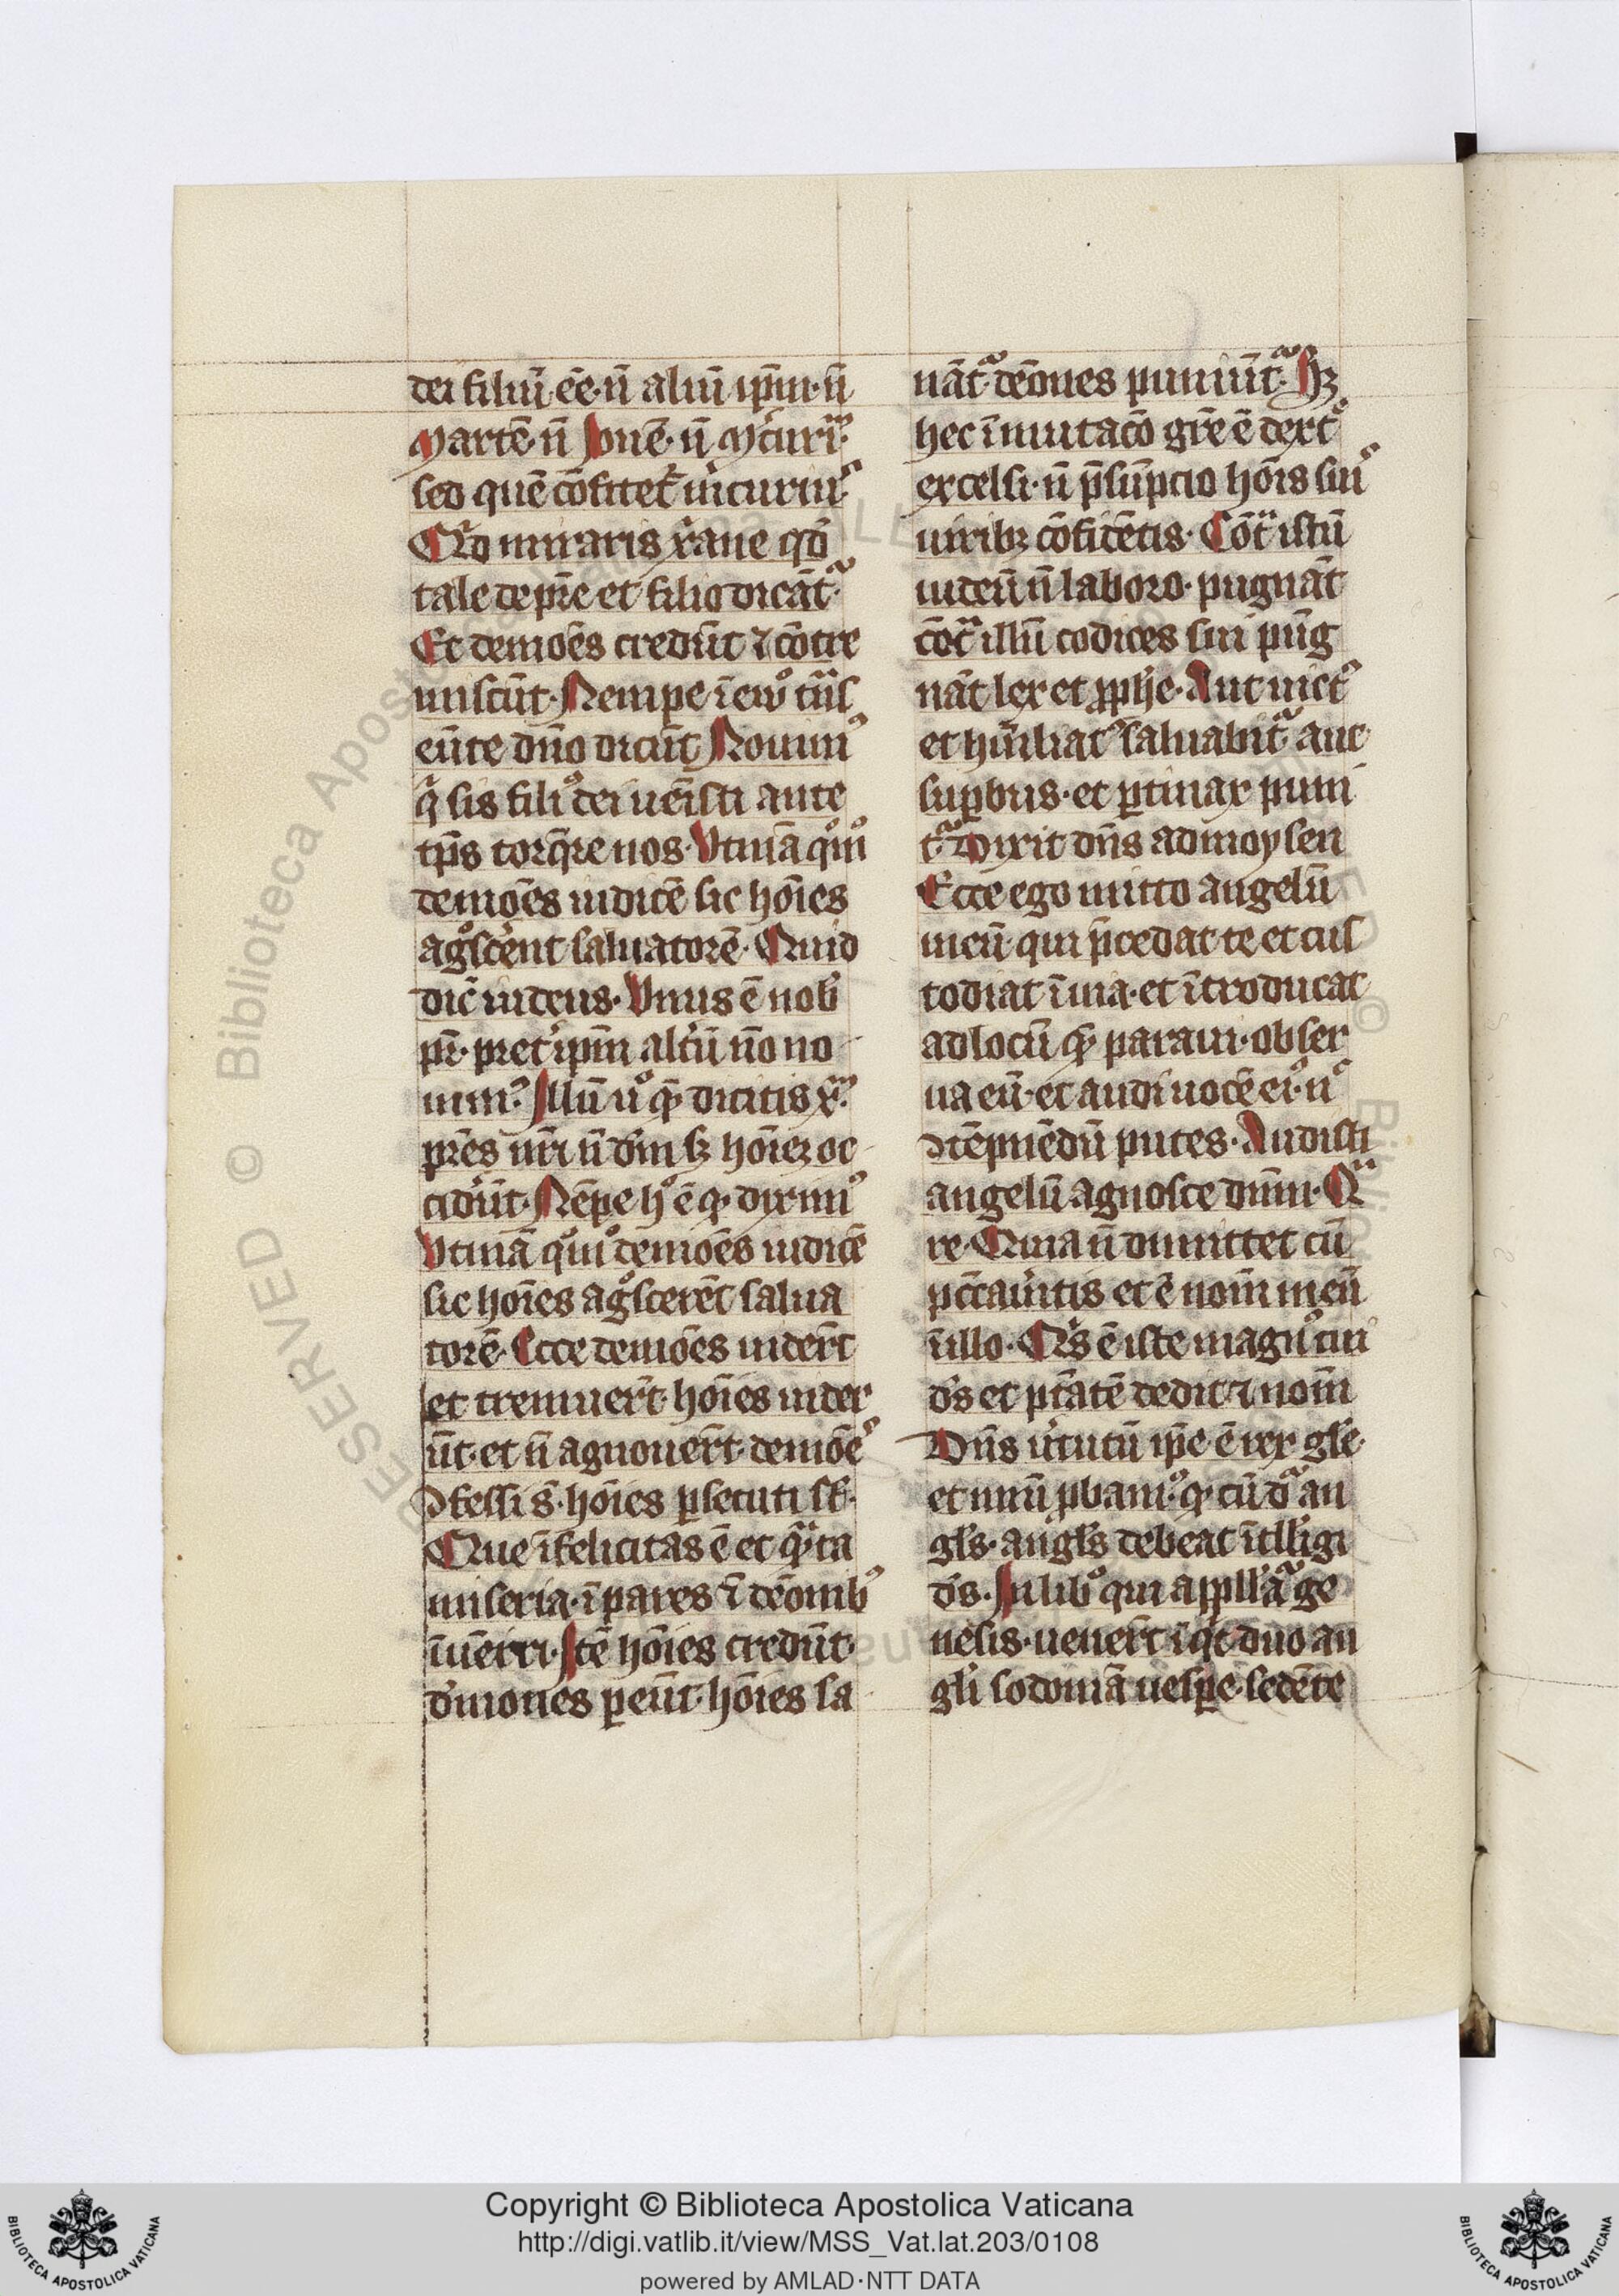 dei filiū ēē. n̄ aliū ip̄m. n̄
Martē. n̄ Iouē. n̄ M̄curiū.
sed quē cōfitet᷑
Qͥd miraris xp̄iane qd̄
tale de pr̄e et filio dicāt᷑.
Et demōes credūt ⁊ cōtre
miscūt. Nempe
eūte dn̄o dicūt Nouim᷒
qͥ sis fili᷒ dei uēisti ante
tp̄s torq̄re nos. Vtinā qͦmͦ
demōes iudicē sic hōies
agͦscerent saluatorē. Quid
dic̄ iudeus. Vnus ē nob̄
pr̄. pret̾ ip̄m alt̾ū nō no
uim᷒. Illū u̾ͦ qē dicitis xp̄m.
pr̄es nr̄i n̄ dm̄ sꝫ hoīeꝫ oc
ciderūt. Nēpe hͦ ē qd̾ dixim᷒
Vtinā qͦmͦ demōes iudicē
sic hoīes agͦscerēt salua
torē. Ecce demōes uider̄t
et tremuer̄t. hoīes uider
ūt. et n̄ agnouer̄t. demōe᷒
ꝯfessi s̄. hōies ꝑsecuti st̄.
Que īfelicitas ē et qͣ̄ta
miseria. īpares ī dēonib᷒
īuēiri. Itē hōies credūt.
d̾mones ꝑeūt. hōies sa
nāt᷑. dēones puniūt᷑. Hꝫ
hec īmutac̄o gr̄e ē dext̾͛
excelsi. n̄ p̄sūpcio hōis suis
uiribꝫ cōfidētis. Cōtͣ istū
iudeū n̄ laboro. pugnāt
cōtͣ illū codices sui pūg
nāt lex et ꝓph̄e. Aut uict᷒
et hūiliat᷒ saluabit᷑ aut
suꝑbus. et ꝑtinax puni
t᷑. Dixit dn̄s ad moysen
Ecce ego mitto angelū
meū qui p̄cedat te et cus
todiat ī uia. et ītroducat
ad locū qē paraui. obser
ua eū. et audi uocē ei᷒. n͛
ꝯtēpnēdū putes. Audisti
angelū agnosce dn̄m. Qͣ
re. Quia n̄ dimittet cū
pc̄cau̾itis et ē nom̄ meū
ī illo. Qͥs ē iste magn᷒ cui
d̄s et pt̄atē dedit ⁊ nom̄
Dn̄s u̾tutū ip̄e ē rex gl̄e.
et nūm̄ ꝓbam᷒. qd̾ cū dͬ an
gl̄s. angl̄s debeat ītll̾igi
d̄s. In lib͛o qui appll̾at᷑ ge
nesis. uener̄t īqͥt duo an
gl̄i sodomā uesꝑe. sedēte
Copyright © Biblioteca Apostolica Vaticana
http://digi.vatlib.it/view/MSS_Vat.lat.203/0108
powered by AMLAD·NTT DATA
BIBLIOTECA APOSTOLICA VATICANA
BIBLIOTECA APOSTOLICA VATICANA